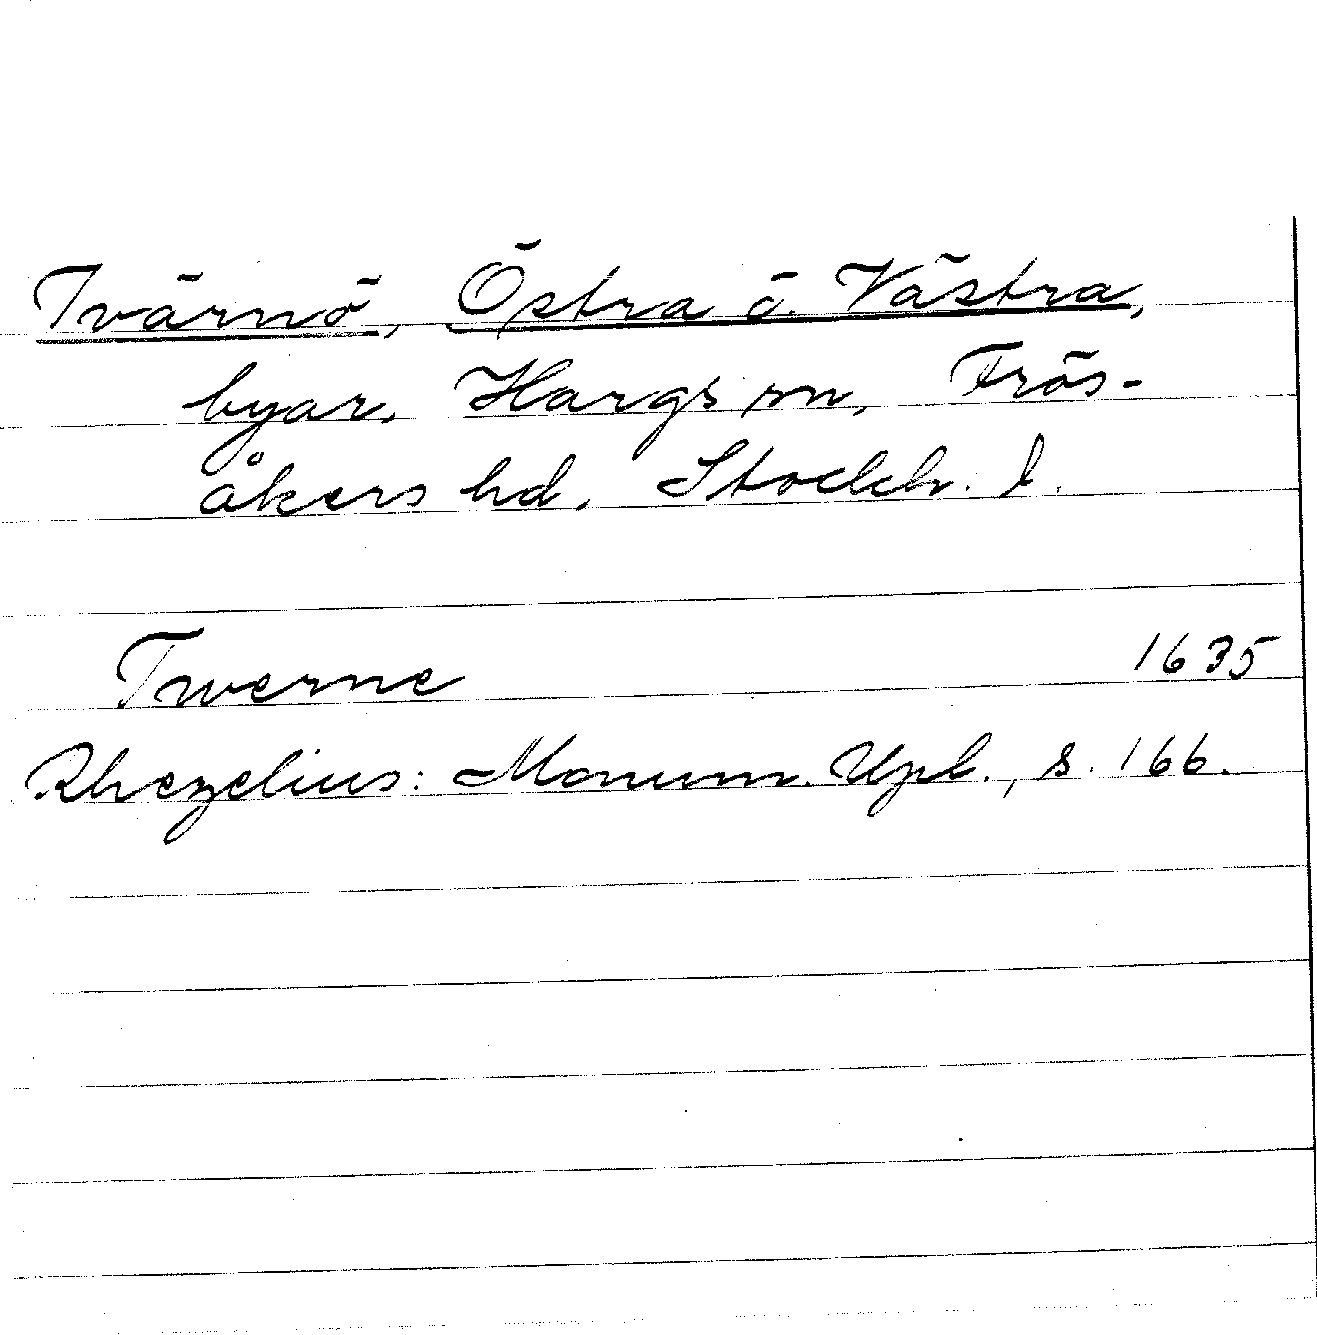 Tvärnö, Östra o. Västra,
byar, Hargs sn, Frös-
åkers hd, Stockh. l.
Twerne 1635
Rhezelius: Monum. Upl., s. 166.